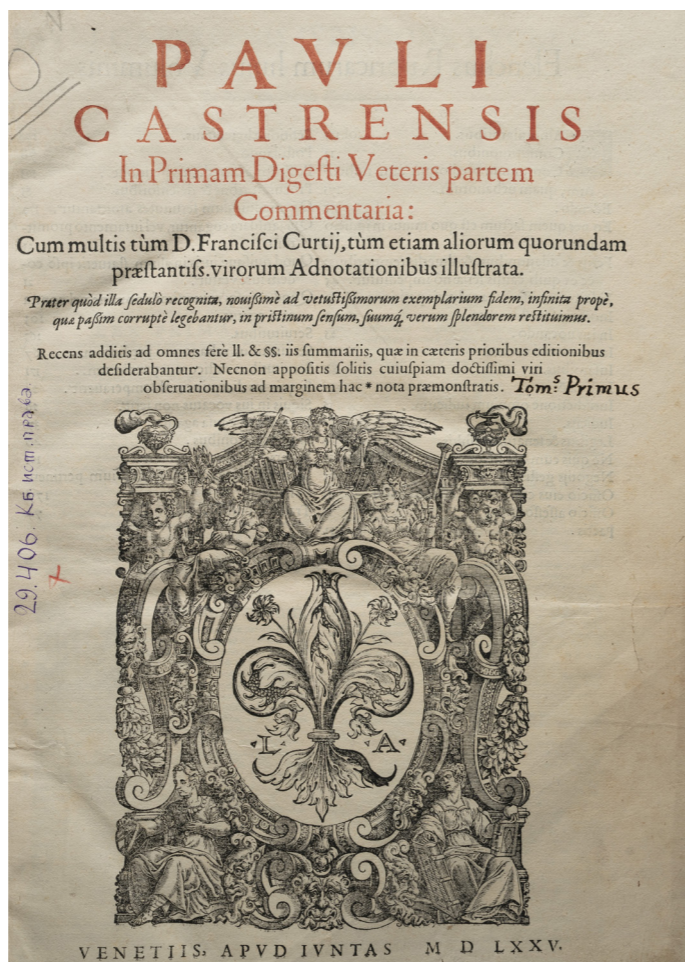 PAVLI
CASTRENSIS
In Primam Digeſti Veteris partem
Commentaria:
Cum multis tùm D. Franciſci Curtij, tùm etiam aliorum quorundam
præſtantiſs. virorum Adnotationibus illuſtrata.
Præter quòd illa ſedulò recognita, nouißimè ad vetuſtißimorum exemplarium fidem, infinita propè,
quæ paßim corruptè legebantur, in priſtinum ſenſum, ſuumq́; verum ſplendorem reſtituimus.
Recens additis ad omnes ferè ll. & §§. iis ſummariis, quæ in cæteris prioribus editionibus
deſiderabantur. Necnon appoſitis ſolitis cuiuſpiam doctiſſimi viri
obſeruationibus ad marginem hac * nota præmonſtratis. Tomˢ Primus
29.406. Кб. ист. права
L A
VENETIIS, APVD IVNTAS M D LXXV.